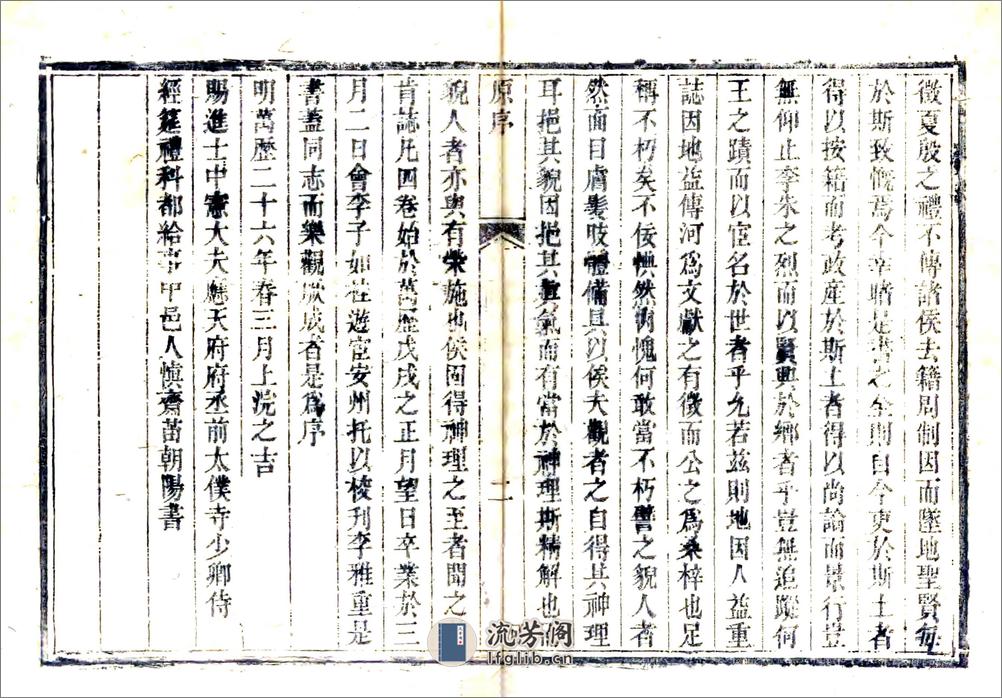 徵夏殷之禮不傳諸侯去籍周制因而墜地聖賢每
於斯致慨焉今幸睹是書之全則自今吏於斯土者
得以按籍而考政産於斯土者得以尚論而景行豈
無仰止李朱之烈而以賢興於鄉者乎豈無追蹤何
王之蹟而以宦名於世者乎允若兹則地因人益重
誌因地益傳河爲文獻之有徵而公之爲桑梓也足
稱不朽矣不佞愧何敢當不朽譬之貌人者
然面目膚髪肢體備具以俟大觀者之自得其神理
耳挹其貌因挹其真氣而有當於神理斯精解也
原序
二
貌人者亦與有榮施也侯固得神理之至者聞之
首誌凡四卷始於萬歷戊戌之正月望日卒業於三
月二日會李子如桂遊宦安州托以梭刊李雅重是
書蓋同志而樂觀厥成者是爲序
明萬歷二十六年春三月上浣之吉
賜進士中憲大夫應天府府丞前太僕寺少卿侍
經筵禮科都給事中邑人慎齋苗朝陽書
流芳閣
lfglib.cn